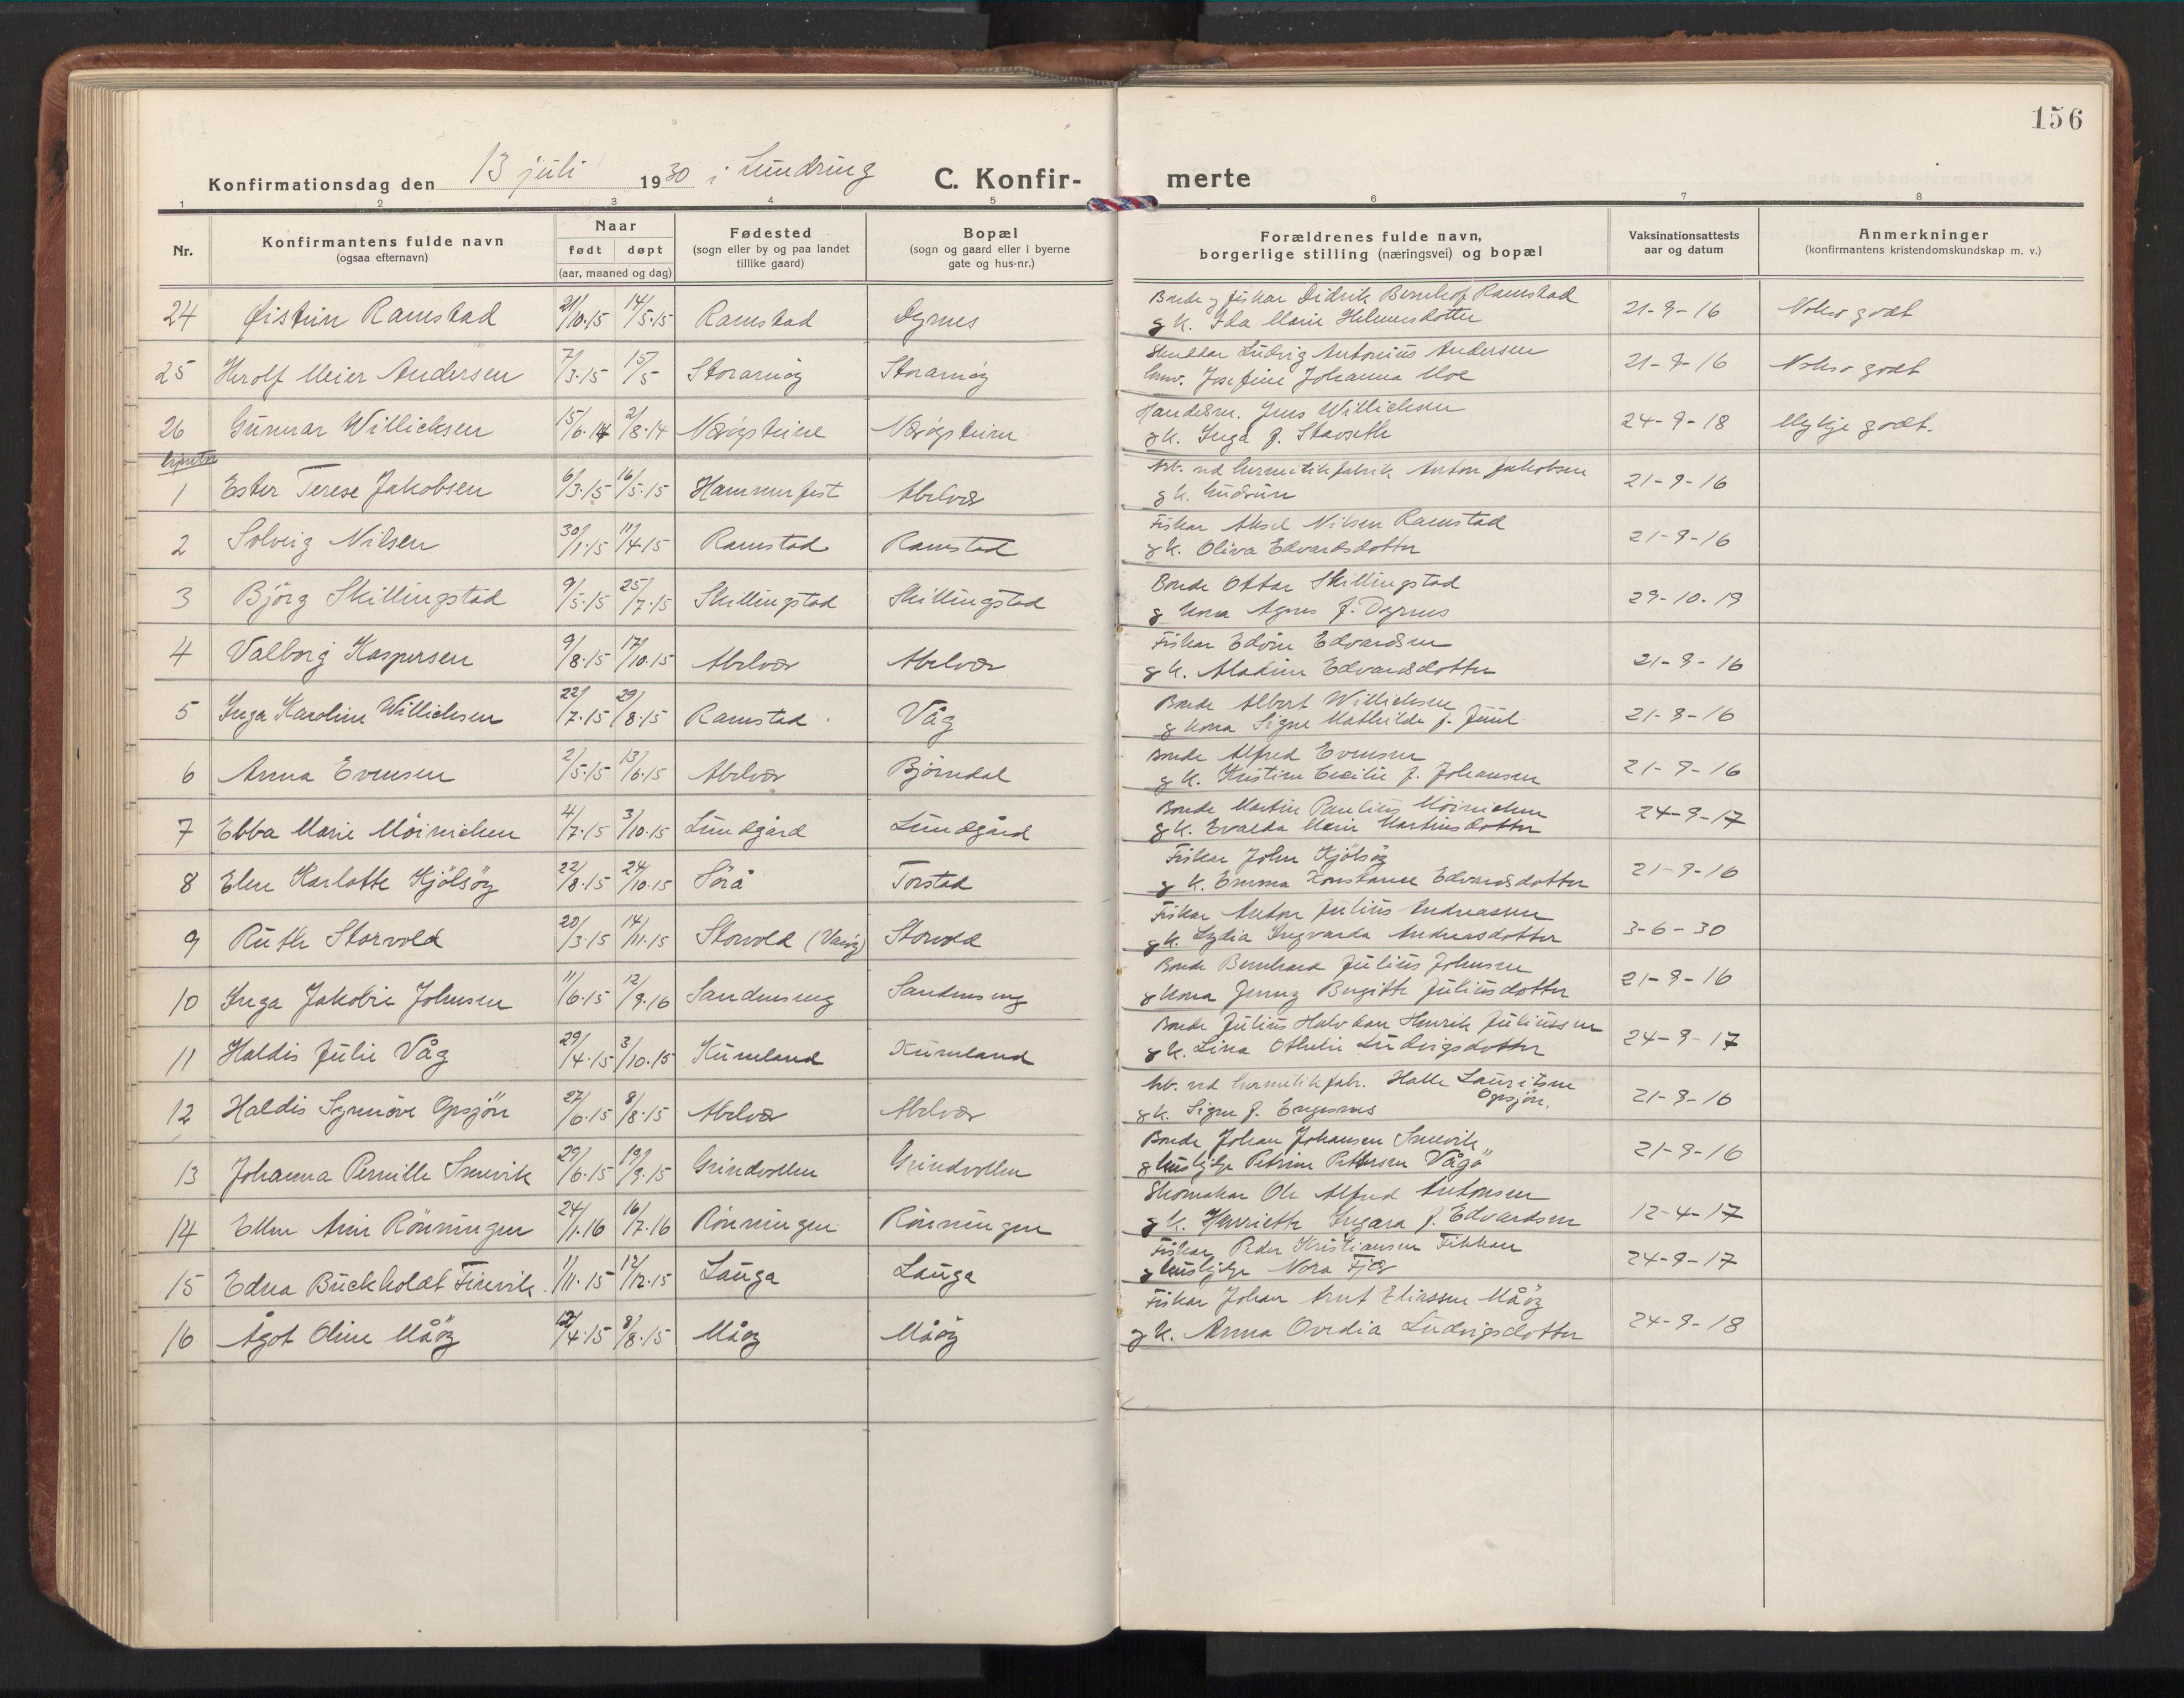 156
Konfirmationsdag den 13 juli 1930 i Lundring C. Konfir- merte
1 2 3 4 5 6 7 8
Nr. Konfirmantens fulde navn (ogsaa efternavn) Naar født døpt (aar, maaned og dag) Fødested (sogn eller by og paa landet tillike gaard) Bopæl (sogn og gaard eller i byerne gate og hus-nr.) Forældrenes fulde navn, borgerlige stilling (næringsvei) og bopæl Vaksinationsattests aar og datum Anmerkninger (konfirmantens kristendomskundskap m. v.)
24 Øistein Ramstad 21/10.15 14/5.15 Ramstad Dyrnes Bonde og fiskar Didrik Bernhof Ramstad
g k. Ida Marie Helmersdotter 21-9-16 Nokso godt
25 Herolf Meier Andersen 7/3.15 15/5 Storarnøy Storarnøy Ludvig Antonius Andersen
Josefine Johanna Moe 21-9-16 Nokso godt
26 Gunnar Willichsen 15/6.14 2/8.14 Nærøysteine Nærøysteine Handelsm. Jens Willichsen
g k. Inga f. Stavseth 24-9-18 Mykje godt.
Gjenter
1 Ester Terese Jakobsen 6/3.15 16/5.15 Hammerfest Abelvær Arb. ved hermetikfabrik Anton Jakobsen
g k. Gudrun 21-9-16
2 Solveig Nilsen 30/1.15 11/4.15 Ramstad Ramstad Fiskar Aksel Nilsen Ramstad
g k. Oliva Edvardsdotter 21-9-16
3 Björg Skillingstad 9/5.15 25/7.15 Skillingstad Skillingstad Bonde Ottar Skillingstad
g kona Agnes f. Dyrnes 29-10-19
4 Valborg Kaspersen 9/8.15 17/10.15 Abelvær Abelvær Fiskar Edvin Edvardsen
g k. Aladine Edvardsdotter 21-9-16
5 Inga Karoline Willichsen 22/7.15 29/8.15 Ramstad Våg Bonde Albert Willichsen
g kona Signe Mathilde f. Juul 21-9-16
6 Anna Evensen 2/5.15 13/6.15 Abelvær Björndal Bonde Alfred Evensen
g k. Kristine Cecilie f. Johansen 21-9-16
7 Ebba Marie Möinichen 4/7.15 3/10.15 Lundgård Lundgård Bonde Martin Paulius Möinichen
g k. Evalda Marie Martinsdotter 24-9-17
8 Elen Karlotte Kjölsöy 22/8.15 24/10.15 Sörå Torstad Fiskar John Kjölsöy
g k. Emma Konstanse Edvardsdotter 21-9-16
9 Ruth Storvold 20/3.15 14/11.15 Storvold Storvold Fiskar Anton Julius Andreassen
g k. Lydia Ingvarda Andreasdotter 3-6-30
10 Inga Jakobie Johnsen 11/6.15 12/9.16 Sandneseng Sandneseng Bonde Bernhard Julius Johnsen
g kona Jenny Birgitte Juliusdotter 21-9-16
11 Haldis Julie Våg 29/4.15 3/10.15 Kurnland Kurnland Bonde Julius Halvdan Henrik Juliussen
g k. Lina Othelie Ludvigsdotter 24-9-17
12 Haldis Synnöve Opsjön 27/6.15 8/8.15 Abelvær Abelvær Arb. ved hermetikfabr. Halle Lauritsen
Opsjön.
g k. Signe f. Engesnes 21-9-16
13 Johanna Pernille Snevik 29/6.15 19/9.15 Grindvollen Grindvollen Bonde Johan Johansen Snevik
g Petrine Pettersen Vågö 21-9-16
14 Ellen Anie Rönningen 24/1.16 16/7.16 Rönningen Rönningen Skomakar Ole Alfred Antonsen
g k. Henriette Ingara f. Edvardsen 12-4-17
15 Edna Buckholdt Finvik 1/11.15 12/12.15 Lauga Lauga Fiskar Peder Kristiansen Fikkan
g Nora 24-9-17
16 Ågot Oline Måöy 12/4.15 8/8.15 Måöy Måöy Fiskar Johan Arnt Eliassen Måöy
g k. Anna Ovedia Ludvigsdotter 24-9-18